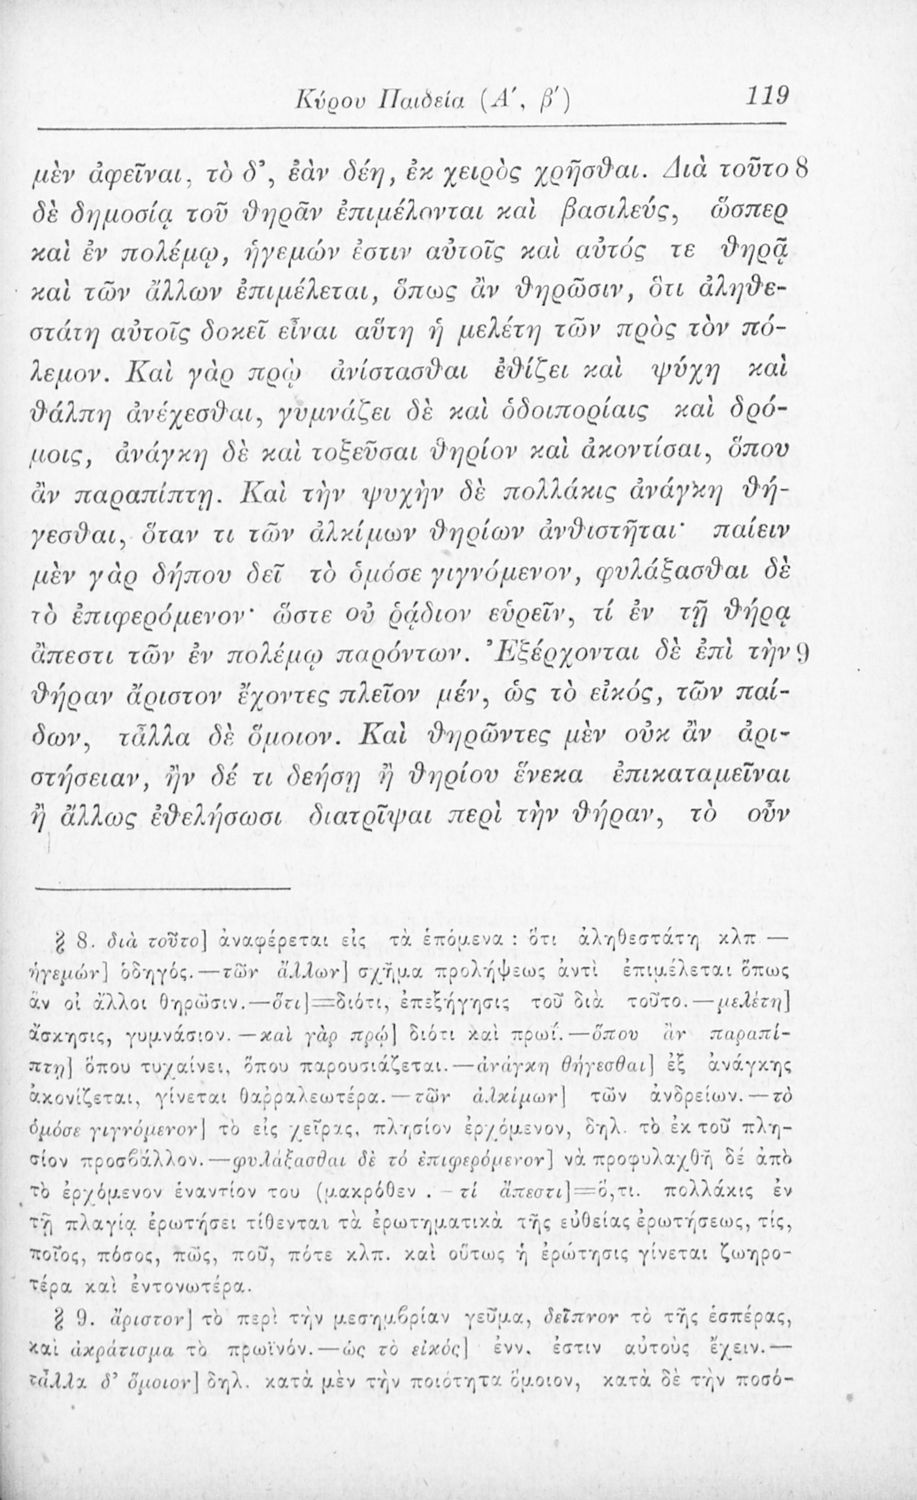 Κύρου Παιδεία (Α΄, β΄) 119
μὲν ἀφεῖναι, τὸ δ’, ἐὰν δέῃ, ἐκ χειρὸς χρῆσθαι. Διὰ τοῦτο 8
δὲ δημοσίᾳ τοῦ θηρᾶν ἐπιμέλονται καὶ βασιλεύς, ὥσπερ
καὶ ἐν πολέμῳ, ἡγεμών ἐστιν αὐτοῖς καὶ αὐτός τε θηρᾷ
καὶ τῶν ἄλλων ἐπιμέλεται, ὅπως ἂν θηρῶσιν, ὅτι ἀληθε-
στάτη αὐτοῖς δοκεῖ εἶναι αὕτη ἡ μελέτη τῶν πρὸς τὸν πό-
λεμον. Καὶ γὰρ πρῲ ἀνίστασθαι ἐθίζει καὶ ψύχη καὶ
θάλπη ἀνέχεσθαι, γυμνάζει δὲ καὶ ὁδοιπορίαις καὶ δρό-
μοις, ἀνάγκη δὲ καὶ τοξεῦσαι θηρίον καὶ ἀκοντίσαι, ὅπου
ἂν παραπίπτῃ. Καὶ τὴν ψυχὴν δὲ πολλάκις ἀνάγκη θή-
γεσθαι, ὅταν τι τῶν ἀλκίμων θηρίων ἀνθιστῆται· παίειν
μὲν γὰρ δήπου δεῖ τὸ ὁμόσε γιγνόμενον, φυλάξασθαι δὲ
τὸ ἐπιφερόμενον· ὥστε οὐ ῥᾴδιον εὑρεῖν, τί ἐν τῇ θήρᾳ
ἄπεστι τῶν ἐν πολέμῳ παρόντων. Ἐξέρχονται δὲ ἐπὶ τὴν 9
θήραν ἄριστον ἔχοντες πλεῖον μέν, ὡς τὸ εἰκός, τῶν παί-
δων, τἆλλα δὲ ὅμοιον. Καὶ θηρῶντες μὲν οὐκ ἂν ἀρι-
στήσειαν, ἢν δέ τι δεήσῃ ἢ θηρίου ἕνεκα ἐπικαταμεῖναι
ἢ ἄλλως ἐθελήσωσι διατρῖψαι περὶ τὴν θήραν, τὸ οὖν
§ 8. διὰ τοῦτο] ἀναφέρεται εἰς τὰ ἑπόμενα : ὅτι ἀληθεστάτη κλπ —
ἡγεμών] ὁδηγός.—τῶν ἄλλων] σχῆμα προλήψεως ἀντὶ ἐπιμέλεται ὅπως
ἂν οἱ ἄλλοι θηρῶσιν.—ὅτι]=διότι, ἐπεξήγησις τοῦ διὰ τοῦτο.—μελέτη]
ἄσκησις, γυμνάσιον.—καὶ γὰρ πρῴ] διότι καὶ πρωΐ.—ὅπου ἂν παραπί-
πτῃ] ὅπου τυχαίνει, ὅπου παρουσιάζεται.—ἀνάγκη θήγεσθαι] ἐξ ἀνάγκης
ἀκονίζεται, γίνεται θαρραλεωτέρα.—τῶν ἀλκίμων] τῶν ἀνδρείων.—τὸ
ὁμόσε γιγνόμενον] τὸ εἰς χεῖρας, πλησίον ἐρχόμενον, δηλ. τὸ ἐκ τοῦ πλη-
σίον προσβάλλον.—φυλάξασθαι δὲ τό ἐπιφερόμενον] νὰ προφυλαχθῇ δέ ἀπὸ
τὸ ἐρχόμενον ἐναντίον του (μακρόθεν . - τί ἄπεστι]=ὅ,τι. πολλάκις ἐν
τῇ πλαγίᾳ ἐρωτήσει τίθενται τὰ ἐρωτηματικὰ τῆς εὐθείας ἐρωτήσεως, τίς,
ποῖος, πόσος, πῶς, ποῦ, πότε κλπ. καὶ οὕτως ἡ ἐρώτησις γίνεται ζωηρο-
τέρα καὶ ἐντονωτέρα.
§ 9. ἄριστον] τὸ περὶ τὴν μεσημβρίαν γεῦμα, δεῖπνον τὸ τῆς ἑσπέρας,
καὶ ἀκράτισμα τὸ πρωϊνόν.—ὡς τὸ εἰκός] ἐνν. ἐστιν αὐτοὺς ἔχειν.—
τἆλλα δ’ ὅμοιον] δηλ. κατὰ μὲν τὴν ποιότητα ὅμοιον, κατὰ δὲ τὴν ποσό-